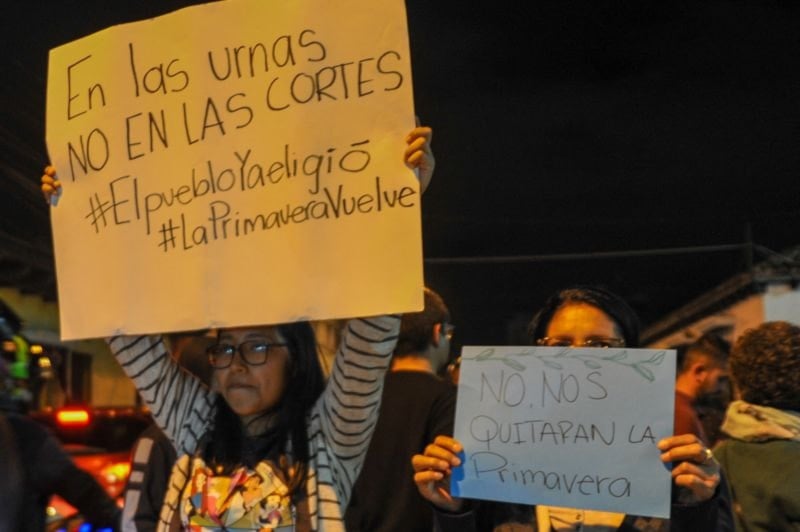 En las urnas
NO EN LAS CORTES
#ElpuebloYaeligió
#LaPrimaveraVuelve
NO, NOS
QUITARAN LA
Primavera